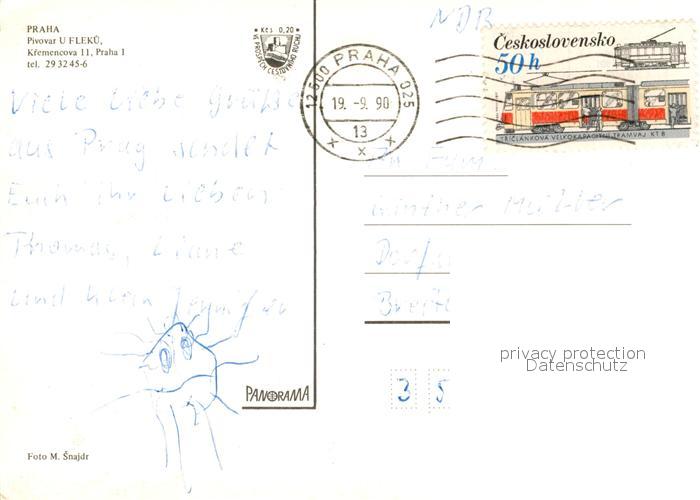 PRAHA
Pivovar U FLEKŮ,
Křemencova 11, Praha 1
tel. 29 32 45-6
Kčs 0,20
VE PROSPĚCH CESTOVNÍHO RUCHU
NDR
12500 PRAHA 025
19. -9. 90
13
Československo
50 h
ŘÍČLÁNKOVÁ VELKOKAPACITNÍ TRAMVAJ KT 8
Viele liebe Grüße
aus Prag sendet
Euch Ihr Lieben
Thomas, Liane
und klein
Günther Müller
Dorf
PANORAMA
3 5
privacy protection
Datenschutz
Foto M. Šnajdr